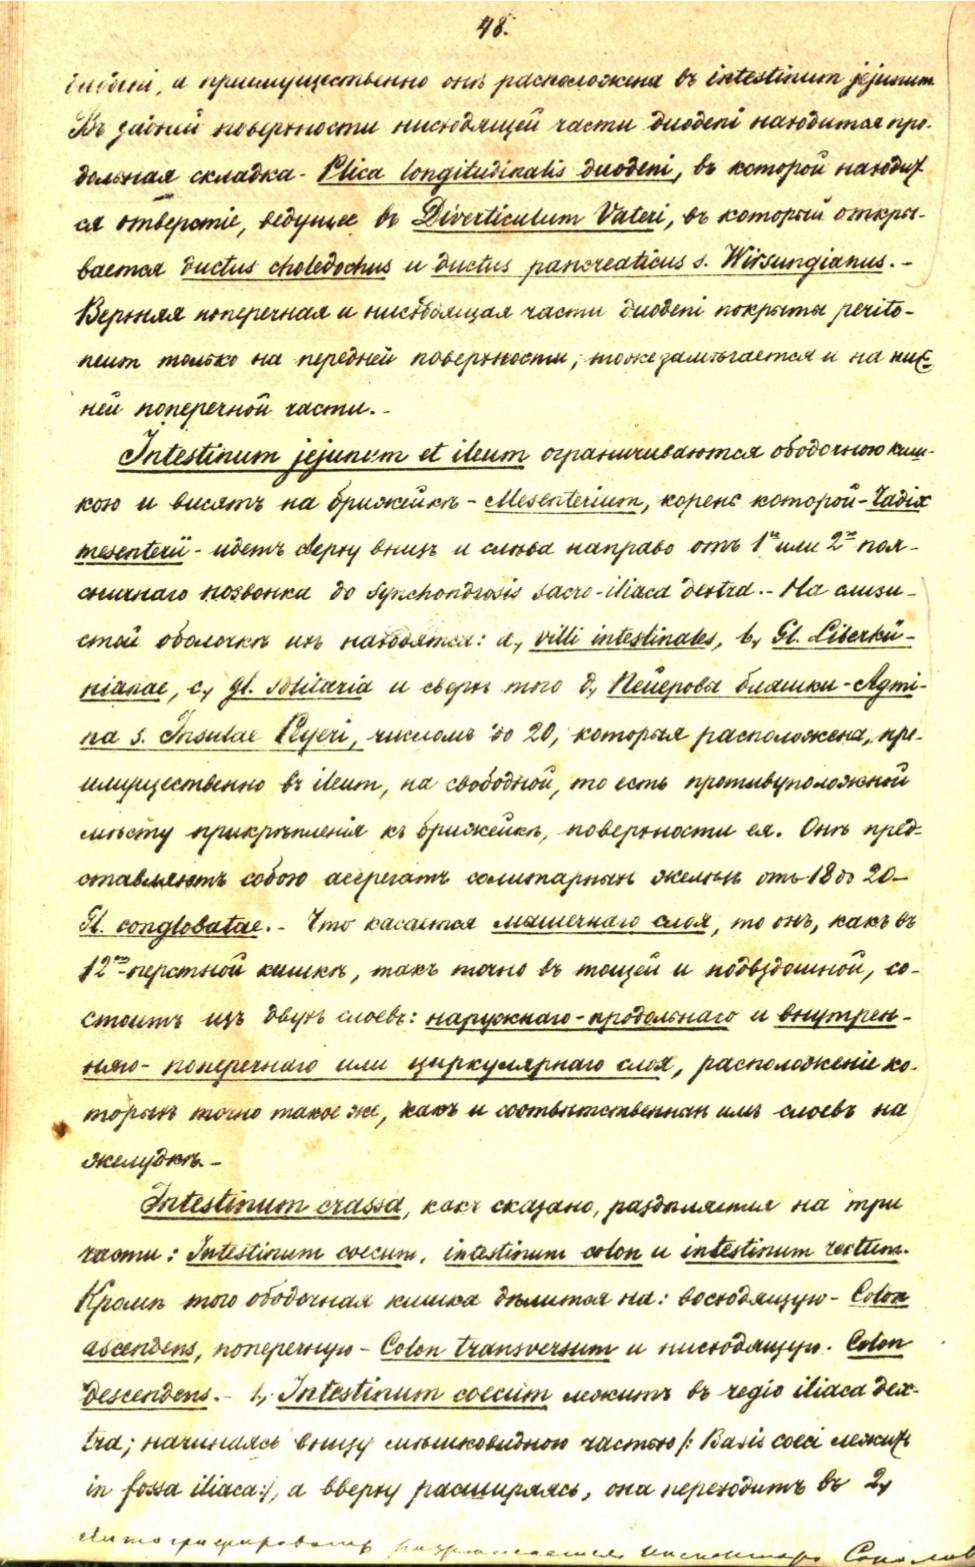 48.
duodeni, а преимущественно онѣ расположена въ intestinum jejunum
Въ задней поверхности нисходящей части duodeni находится про-
дольная складка - Plica longitudinalis duodeni, въ которой находит
ся отверстіе, ведущее въ Diverticulum Vateri, въ который откры-
вается ductus choledochus и ductus pancreaticus s. Wirsungianus. -
Верхняя поперечная и нисходящая части duodeni покрыты perito-
neum только на передней поверхности; тоже замѣчается и на ниж
ней поперечной части. -
Intestinum jejunum et ileum ограничиваются ободочною киш-
кою и висятъ на брыжейкѣ - Mesenterium, корень которой - Radix
mesenterii - идетъ сверху внизъ и слѣва направо отъ 1го или 2го поя-
сничнаго позвонка до Synchondrosis sacro-iliaca dextra. - На слизи-
стой оболочкѣ ихъ находятся: a, villi intestinales, b, Gl. Liberkü-
nianae, c, gl. solitaria и сверхъ того d, Пейеровы бляшки - Agmi-
na s. Insulae Peyeri, числомъ до 20, которыя расположена, пре-
имущественно въ ileum, на свободной, то есть противуположной
мѣсту прикрѣпленія къ брыжейкѣ, поверхности ея. Онѣ пред-
ставляютъ собою агрегатъ солитарныхъ железъ отъ 18 до 20 -
Gl. conglobatae. - Что касается мышечнаго слоя, то онъ, какъ въ
12ти-перстной кишкѣ, такъ точно въ тощей и подвздошной, со-
стоитъ изъ двухъ слоевъ: наружнаго - продольнаго и внутрен-
няго - поперечнаго или циркулярнаго слоя, расположеніе ко-
торыхъ точно такое же, какъ и соотвѣтственныхъ имъ слоевъ на
желудкѣ. -
Intestinum crassa, какъ сказано, раздѣляется на три
части: Intestinum coecum, intestinum colon и intestinum rectum.
Кромѣ того ободочная кишка дѣлится на: восходящую - Colon
ascendens, поперечную - Colon transversum и нисходящую - Colon
descendens. - 1, Intestinum coecum лежитъ въ regio iliaca dex-
tra; начинаясь внизу мѣшковидною частью /: Basis coeci лежитъ
in fossa iliaca:/, а вверху расширяясь, она переходитъ въ 2,
Литографировать разрѣшается Инспекторъ